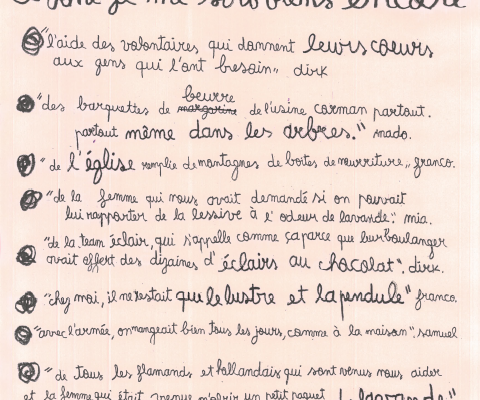 je me souviens encore
"l'aide des volontaires qui donnent leurs coeurs
aux gens qui l'ont besoin" dirk
beurre
"des barquettes de margarine de l'usine corman partout.
partout même dans les arbres." mado.
"de l'église remplie de montagnes de boites de nourriture" franco.
"de la femme qui nous avait demandé si on pouvait
lui rapporter de la lessive à l'odeur de lavande." mia.
"de la team éclair, qui s'appelle comme ça parce que leur boulanger
avait offert des dizaines d'éclairs au chocolat". dirk.
"chez moi, il ne restait que le lustre et la pendule" franco.
"avec l'armée, on mangeait bien tous les jours, comme à la maison". samuel
"de tous les flamands et hollandais qui sont venus nous aider
et la femme qui était venue m'offrir un petit paquet